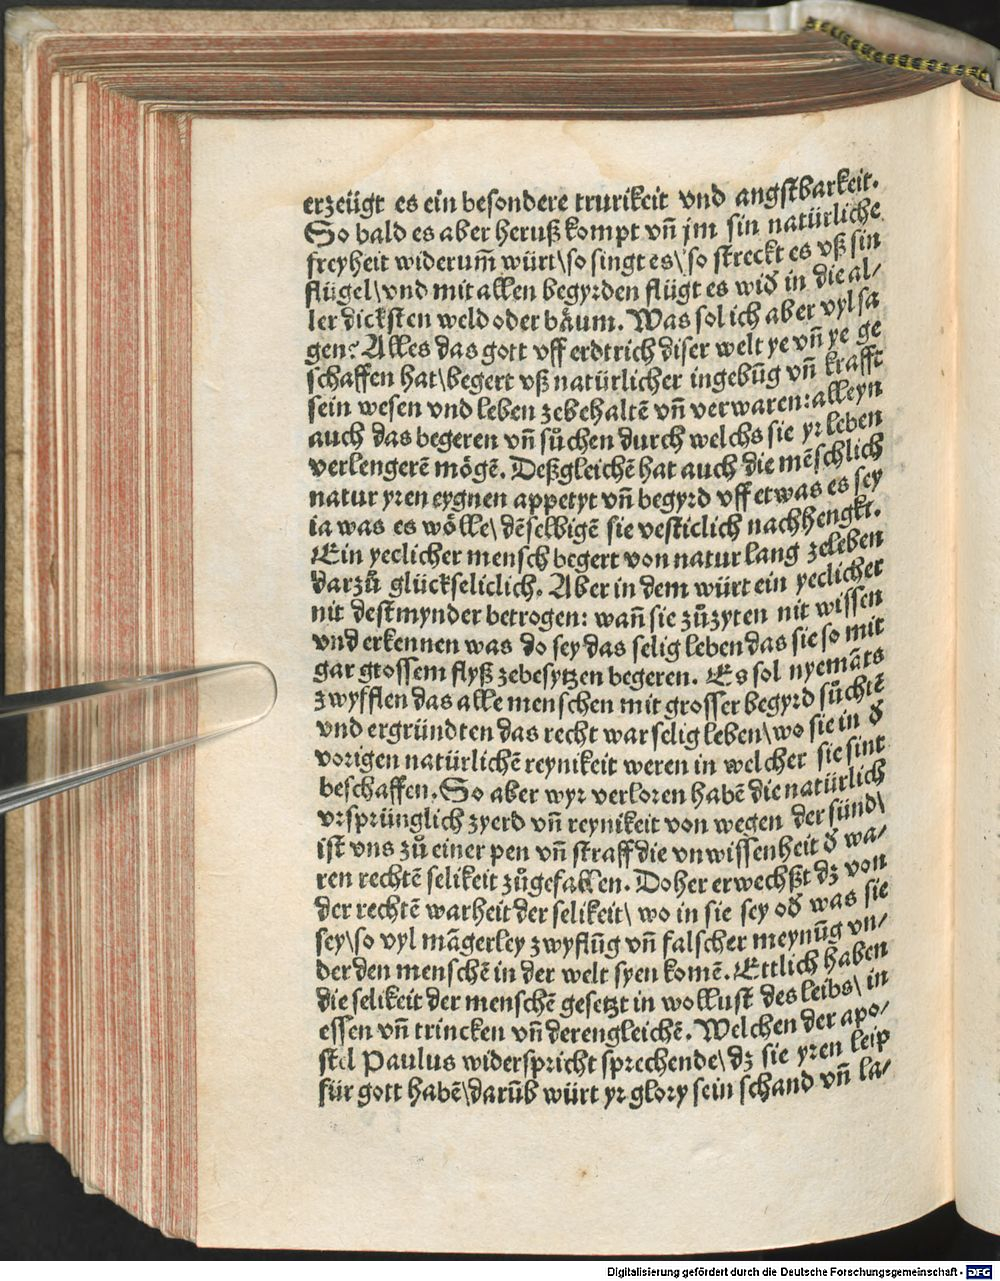 erzeügt es ein besondere trurikeit vnd angstbarkeit.
So bald es aber heruß kompt vn̄ jm sin natürliche
freyheit widerum̄ würt\so singt es\so streckt es vß sin
flügel\vnd mit allen begyrden flügt es wid̕ in die al/
ler dicksten weld oder bäum. Was sol ich aber vyl sa
gen? Alles das gott vff erdtrich diser welt ye vn̄ ye ge
schaffen hat\begert vß natürlicher ingebūg vn̄ krafft
sein wesen vnd leben zebehaltē vn̄ verwaren: alleyn
auch das begeren vn̄ sůchen durch welchs sie yr leben
verlengerē mögē. Deßgleichē hat auch die mēschlich
natur yren eygnen appetyt vn̄ begyrd vff etwas es sey
ia was es wölle\dēselbigē sie vesticlich nachhengkt.
Ein yeclicher mensch begert von natur lang zeleben
darzů glückseliclich. Aber in dem würt ein yeclicher
nit destmynder betrogen: wan̄ sie zůzyten nit wissen
vnd erkennen was do sey das selig leben das sie so mit
gar grossem flyß zebesytzen begeren. Es sol nyemāts
zwyfflen das alle menschen mit grosser begyrd sůchtē
vnd ergründten das recht war selig leben\wo sie in d̕
vorigen natürlichē reynikeit weren in welcher sie sint
beschaffen. So aber wyr verloren habē die natürlich
vrsprünglich zyerd vn̄ reynikeit von wegen der sünd\
ist vns zů einer pen vn̄ straff die vnwissenheit d̕ wa/
ren rechtē selikeit zůgefallen. Doher erwechßt dz von
der rechtē warheit der selikeit\ wo in sie sey od̕ was sie
sey\so vyl māgerley zwyflūg vn̄ falscher meynūg vn/
der den menschē in der welt syen komē. Ettlich haben
die selikeit der menschē gesetzt in wollust des leibs\ in
essen vn̄ trincken vn̄ derengleichē. Welchen der apo/
stel Paulus widerspricht sprechende\dz sie yren leip
für gott habē\darūb würt yr glory sein schand vn̄ la/
Digitalisierung gefördert durch die Deutsche Forschungsgemeinschaft - DFG